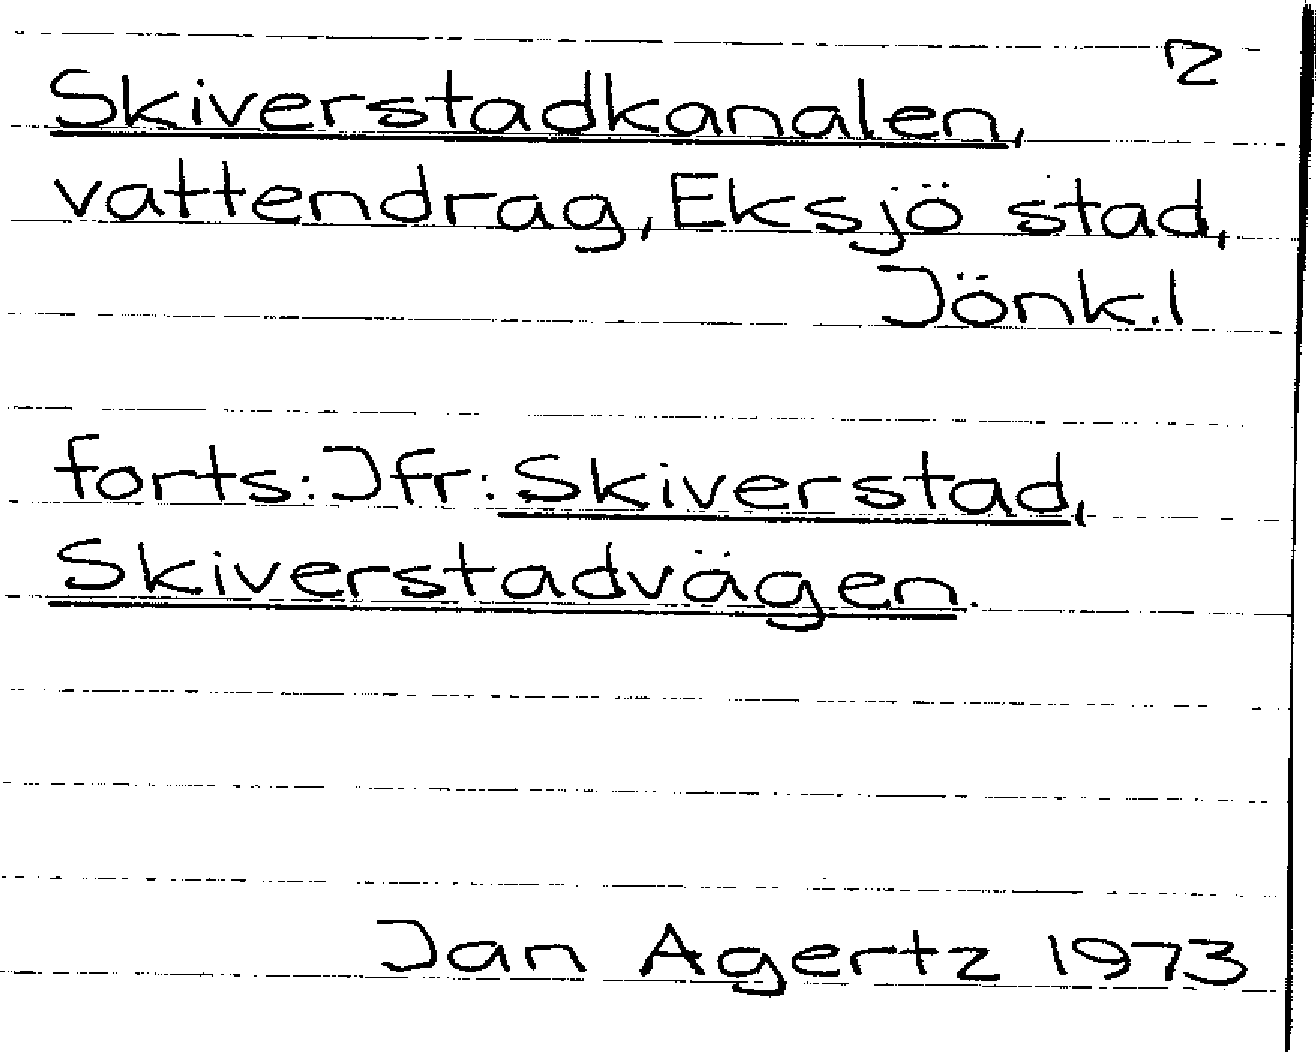 2
Skiverstadkanalen,
vattendrag, Eksjö stad,
Jönk.l
forts: Jfr: Skiverstad,
Skiverstadvägen.
Jan Agertz 1973